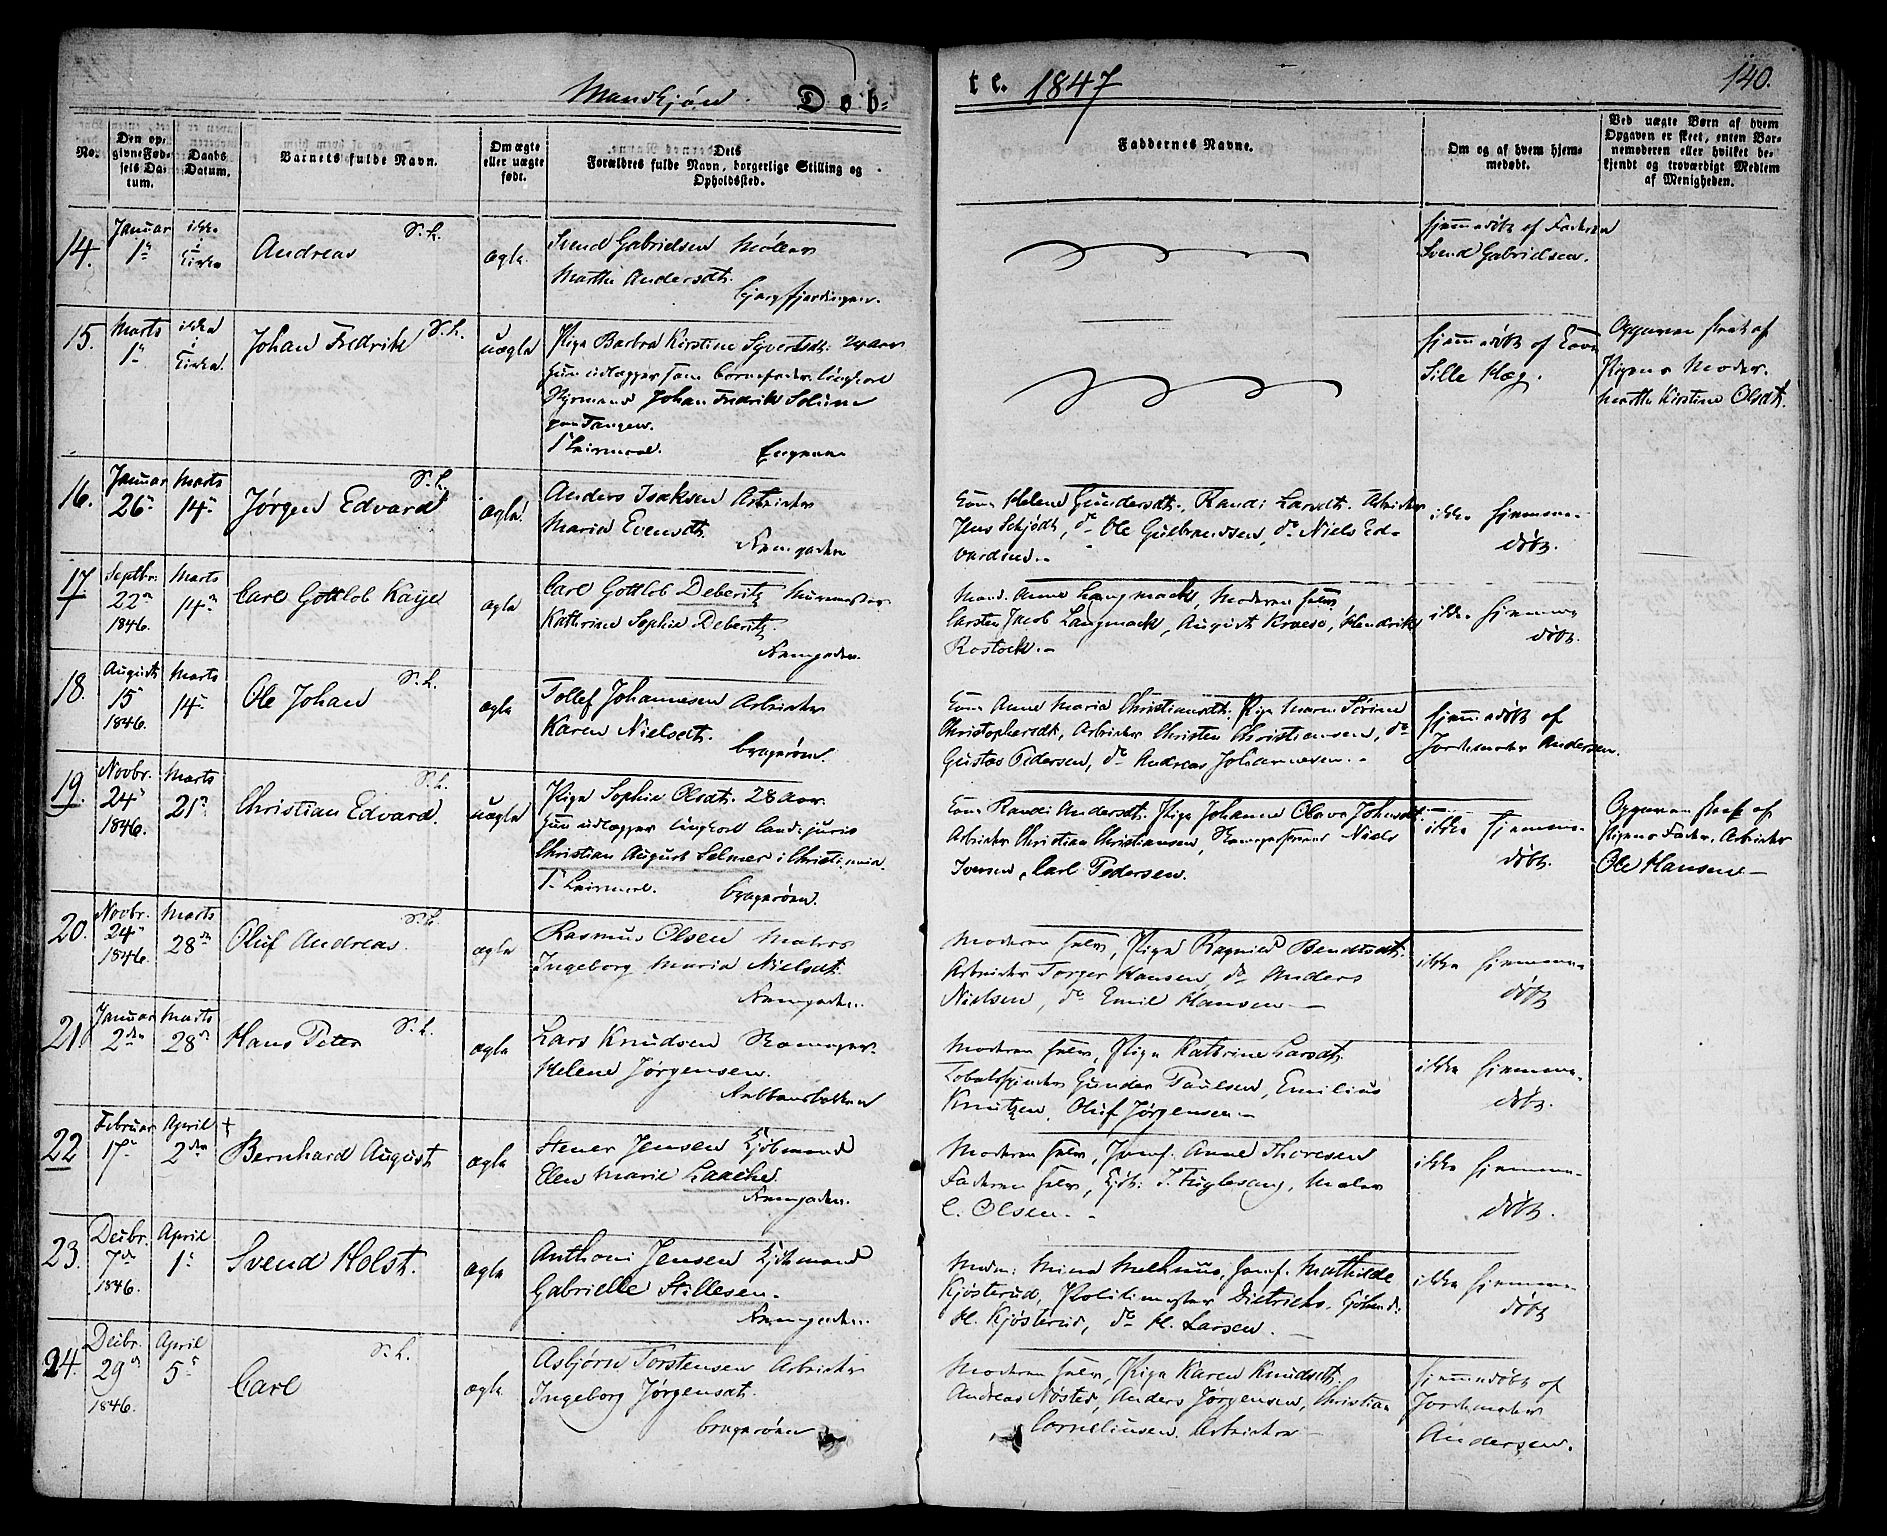 Mandkjøn. Døb=
te. 1847
140.
No.
Den opgivne Fødsels Datum.
Daabs Datum.
Barnets fulde Navn.
Om ægte eller uægte født.
Dets Forældres fulde Navn, borgerlige Stilling og Opholdssted.
Faddernes Navne.
Om og af hvem hjemmedøbt.
Ved uægte Børn af hvem Opgaven er skeet, enten Barnemoderen eller hvilket bekjendt og troværdigt Medlem af Menigheden.
14. Januar 1 ikke i Kirke Andreas S.L. ægte
Svend Gabrielsen
Marthe Andersdt.
hjemmedøbt af Faderen
Svend Gabrielsen.
15. Marts 1 ikke i Kirke Johan Fredrik S.L. uægte
Pige Barbra Kirstine Syvertsdt. 24 aar
hun udlægger som barnefader ungkarl
Styrmand Johan Fredrik Solum
paa Tangen.
1ste Leiermaal. Engene
hjemmedøbt af Kone
Sille Hæg.
Opgaven skeet af
Pigens Moder
Marthe Kirstine Olsdt.
16. Januar 26 Marts 14 Jørgen Edvard S.L. ægte
Anders Isaksen Arbeider
Maria Evensdt.
Kone Helene Gundersdt., Randi Larsdt. Arbeider
Jens Schjødt, do Ole Gulbrandsen, do Niels Ed-
vardsen.
ikke hjemme-
døbt.
17 Septbr. 22 1846. Marts 14 Carl Gottlob Kaye ægte
Carl Gottlob Deberitz Murmester
Kathrine Sophie Deberitz.
Mad. Anne Langmack, Moderen selv,
Carsten Jacob Langmack, August Kraese, Hendrik
Rostock.
ikke hjemme
døbt.
18. August 15 1846. Marts 14 Ole Johan S.L. ægte
Tollef Johannesen Arbeider
Karen Nielsdt.
Bragerøen.
Kone Anne Maria Christiansdt. Pige Maren Sørine
Christophersdt, Arbeider Christen Christiansen, do
Gustav Pedersen, do Andreas Johannesen.
hjemmedøbt af
Jordemoder Andersen.
19. Novbr. 24 1846. Marts 21 Christian Edvard. S.L. uægte
Pige Sophie Olsdt. 28 aar.
hun udlægger ungkarl Cand. juris
Christian August Selmer i Christiania
1. Leiermaal. Bragerøen.
Kone Randi Andersdt. Pige Johanne Olava Johnsdt.
Arbeider Christian Christiansen, Niels
Iversen, Carl Pedersen.
ikke hjemme-
døbt.
Opgaven skeet af
Pigens Fader, Arbeider
Ole Hansen
20. Novbr. 24 1846. Marts 28 Oluf Andreas. S.L. ægte
Rasmus Olsen Matros
Ingeborg Maria Nielsdt.
Moderen selv, Pige Ragnild Bendtsdt.
Arbeider Torger Hansen, do Anders
Nielsen, do Emil Hansen
ikke hjemme-
døbt
21. Januar 2den Marts 28 Hans Peter S.L. ægte
Lars Knudsen
Helene Jørgensen.
Moderen selv, Pige Kathrine Larsdt.
Tobakspinder Gunder Paulsen, Emilius
Knutzen, Oluf Jørgensen
ikke hjemme-
døbt.
22 Februar 17 April 2den † Bernhard August ægte
Stener Jensen Kjøbmand
Elen Marie Laache.
Moderen selv, Jomf. Anne Thoresen
Faderen selv, Kjøb: J. Fuglesang, Maler
C. Olsen.
ikke hjemme-
døbt.
23. Decbr. 7de 1846. April 1 Svend Holst. ægte
Anthoni Jensen Kjøbmand
Gabrielle Stillesen.
Madm: Mina Melhuus, Jomf. Mathilde
Kjøsterud, Politimester Dietrichs, Kjøbmd:
H. Kjøsterud, do H. Larsen.
ikke hjemme-
døbt
24. Decbr. 29 1846. April 5 Carl S.L. ægte
Asbjørn Torstensen Arbeider
Ingeborg Jørgensdt.
Bragerøen
Moderen selv, Pige Karen Knudsdt.
Andreas Nøsted, Anders Jørgensen, Christian
Corneliussen. Arbeider
hjemmedøbt af
Jordemoder
Andersen.